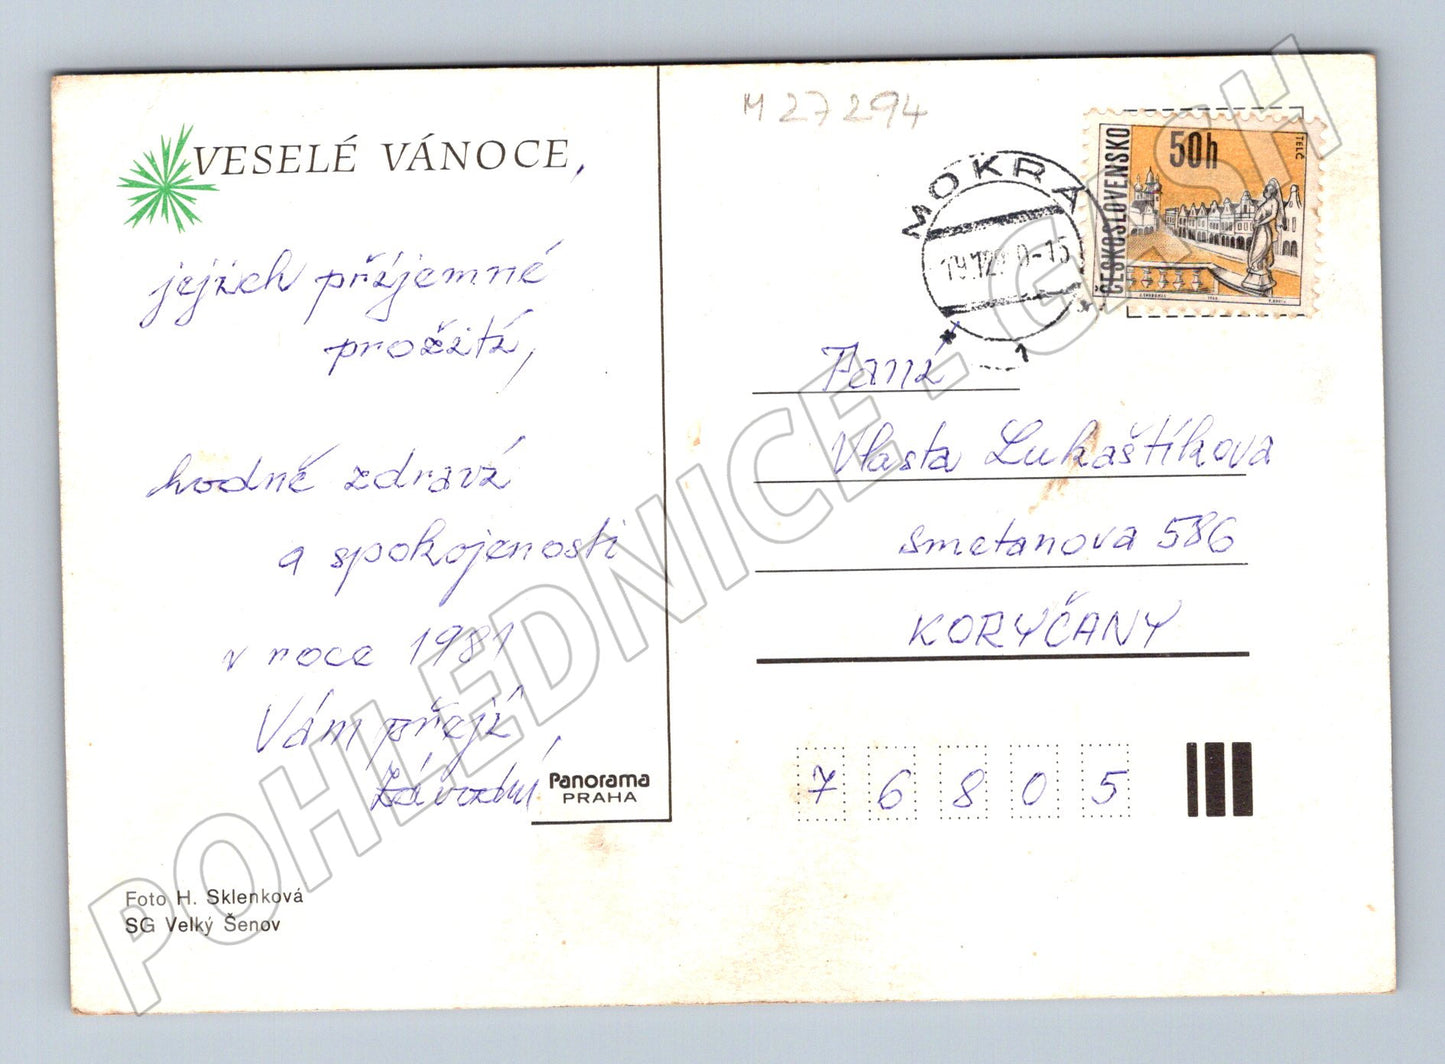 M 27294
VESELÉ VÁNOCE,
jejich příjemné
prožití,
hodně zdraví
a spokojenosti
v roce 1981
Vám přejí
Závodní
Panorama
PRAHA
Foto H. Sklenková
SG Velký Šenov
MOKRÁ
1
ČESKOSLOVENSKO
50h
TELČ
Paní
Vlasta Lukaštíkova
Smetanova 586
KORYČANY
7 6 8 0 5
POHLEDNICE - GASH